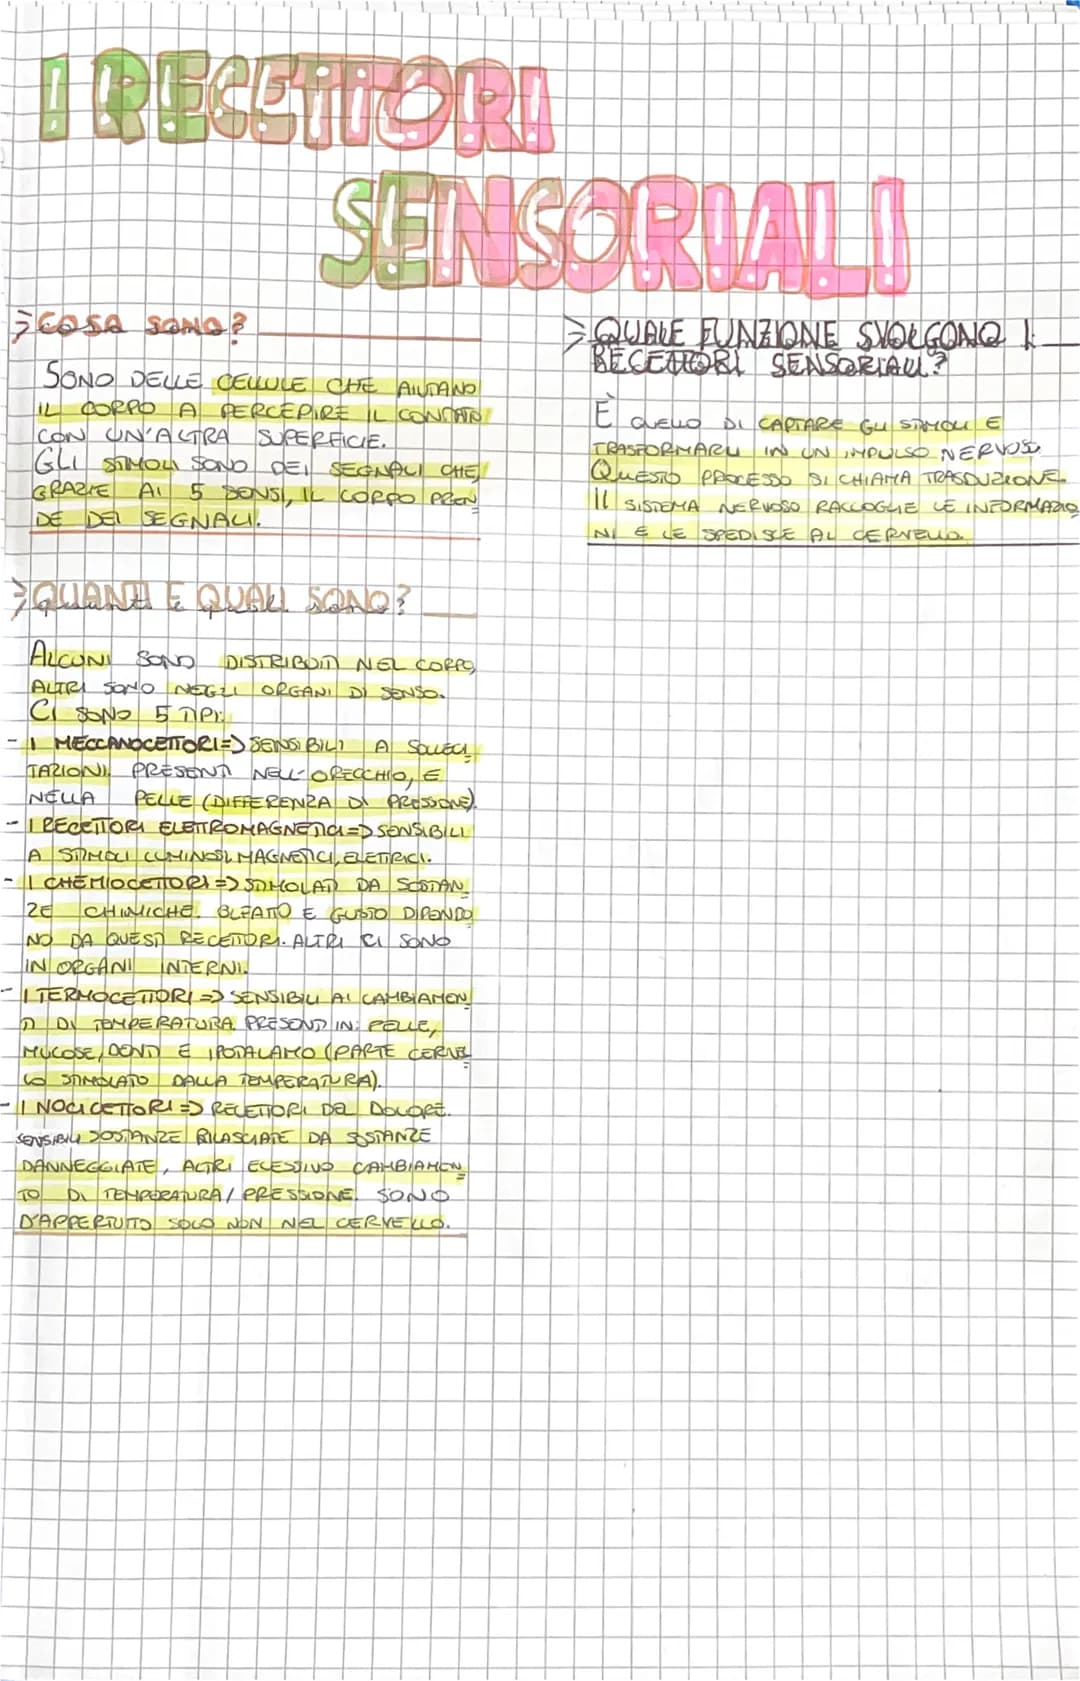 I RECETTORI
SENSORIALI
COSA SONO?
SONO DELLE CELLULE CHE AIUTANO
IL CORPO A PERCEPIRE IL CONTATTO
CON UN'ALTRA SUPERFICIE.
GLI STIMOLI SONO DEI SEGNALI CHE,
GRAZIE AI 5 SENSI, IL CORPO PREN
DE DEI SEGNALI.
QUANTI E QUALI SONO?
ALCUNI SONO DISTRIBUITI NEL CORPO,
ALTRI SONO NEGLI ORGANI DI SENSO.
CI SONO 5 TIPI:
- I MECCANOCETTORI => SENSIBILI A SOLLECI
TAZIONI. PRESENTI NELL'ORECCHIO, E
NELLA PELLE (DIFFERENZA DI PRESSIONE).
- I RECETTORI ELETTROMAGNETICI => SENSIBILI
A STIMOLI LUMINOSI, MAGNETICI, ELETTRICI.
- I CHEMIOCETTORI => STIMOLATI DA SOSTAN
ZE CHIMICHE. OLFATTO E GUSTO DIPENDO
NO DA QUESTI RECETTORI. ALTRI CI SONO
IN ORGANI INTERNI.
- I TERMOCETTORI => SENSIBILI AI CAMBIAMEN
TI DI TEMPERATURA. PRESENTI IN: PELLE,
MUCOSE, DENTI E IPOTALAMO (PARTE CERVEL
LO STIMOLATO DALLA TEMPERATURA).
- I NOCICETTORI => RECETTORI DEL DOLORE.
SENSIBILI SOSTANZE RILASCIATE DA SOSTANZE
DANNEGGIATE, ALTRI ECESSIVO CAMBIAMEN
TO DI TEMPERATURA / PRESSIONE. SONO
D'APPERTUTTO SOLO NON NEL CERVELLO.
QUALE FUNZIONE SVOLGONO I
RECETTORI SENSORIALI?
È QUELLO DI CAPTARE GLI STIMOLI E
TRASFORMARLI IN UN IMPULSO NERVOSO.
QUESTO PROCESSO SI CHIAMA TRASDUZIONE.
IL SISTEMA NERVOSO RACCOGLIE LE INFORMAZIO
NI E LE SPEDISCE AL CERVELLO.